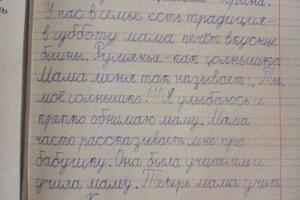 У нас в семье есть традиция -
в субботу мама печёт вкусные
блины. Румяные - как солнышко.
Мама меня так называет: „Ты
моё солнышко!" Я улыбаюсь и
крепко обнимаю маму. Мама
часто рассказывает мне про
бабушку. Она была учителем и
учила маму. Теперь мама учит